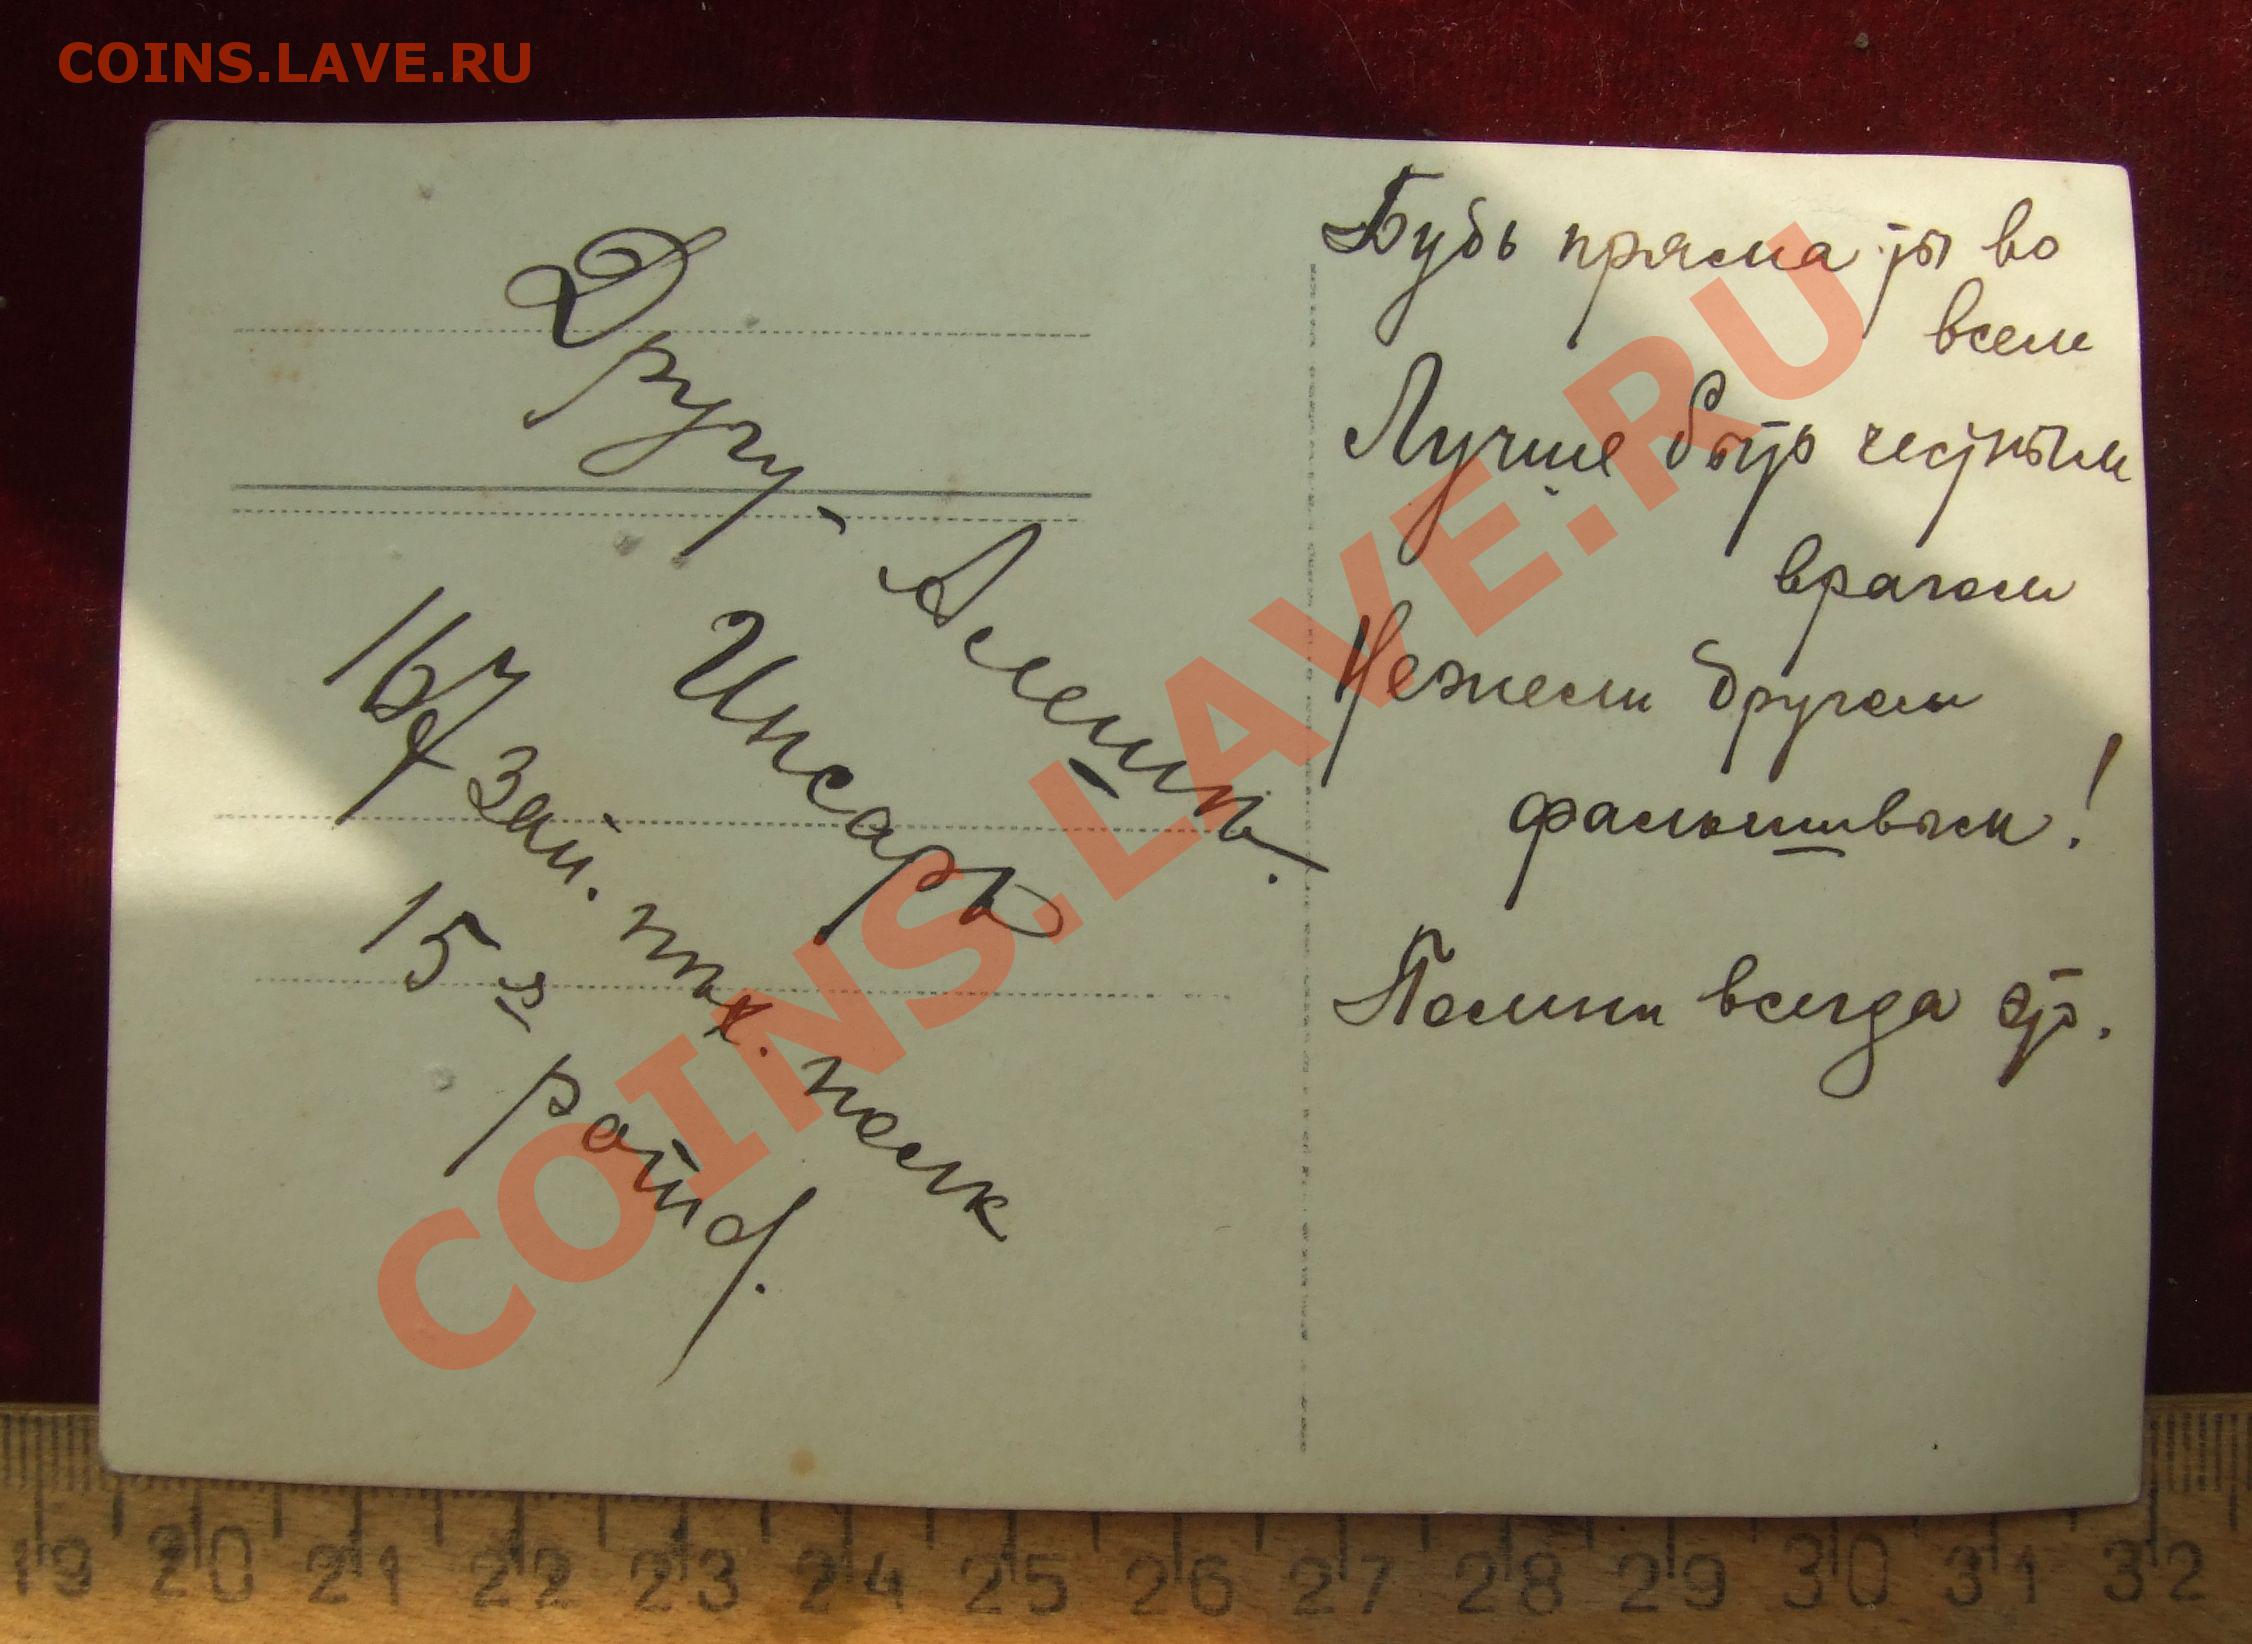 COINS.LAVE.RU
Другу - Алешѣ.
Инсаръ
167 зап. пѣх. полк
15я рота
Будь пряма ты во
всем
Лучше быть честным
врагом
Нежели другом
фальшивым!
Помни всегда это.
COINS.LAVE.RU
19 20 21 22 23 24 25 26 27 28 29 30 31 32